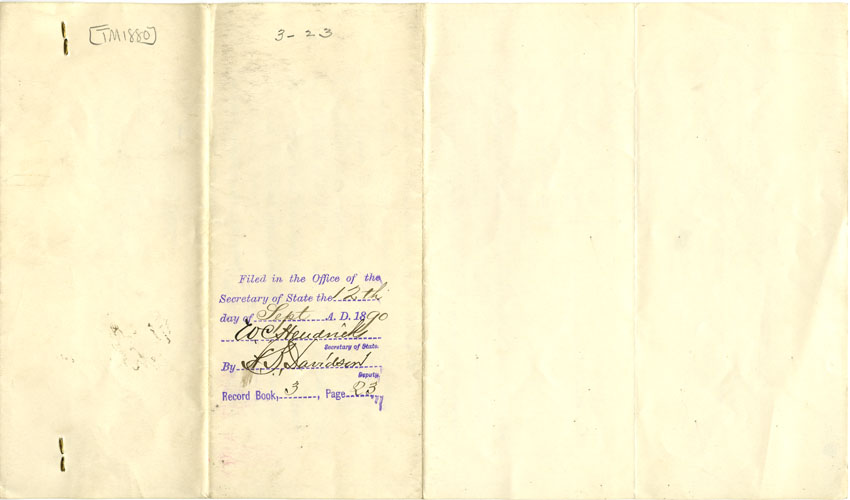 [TM1880]
3-23
Filed in the Office of the
Secretary of State the 12th
day of Sept A. D. 1890
W C Hendricks
Secretary of State.
By Davidson
Deputy.
Record Book, 3, Page 23